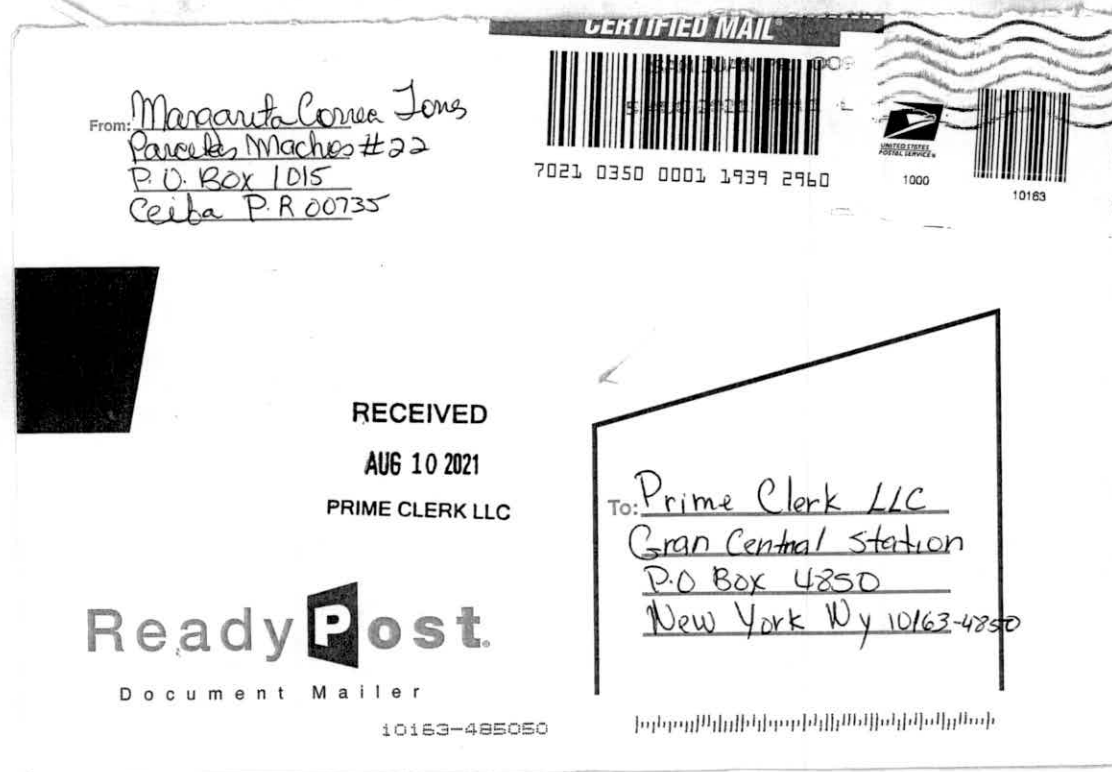 CERTIFIED MAIL®
From: Margarita Correa
Parcelas Machos #22
P.O. Box 1015
Ceiba P.R 00735
7021 0350 0001 1939 2960
UNITED STATES
POSTAL SERVICE®
1000
10163
RECEIVED
AUG 10 2021
PRIME CLERK LLC
To: Prime Clerk LLC
Gran Central Station
P.O Box 4850
New York Ny 10163-4850
ReadyPost®
Document Mailer
10163-485050